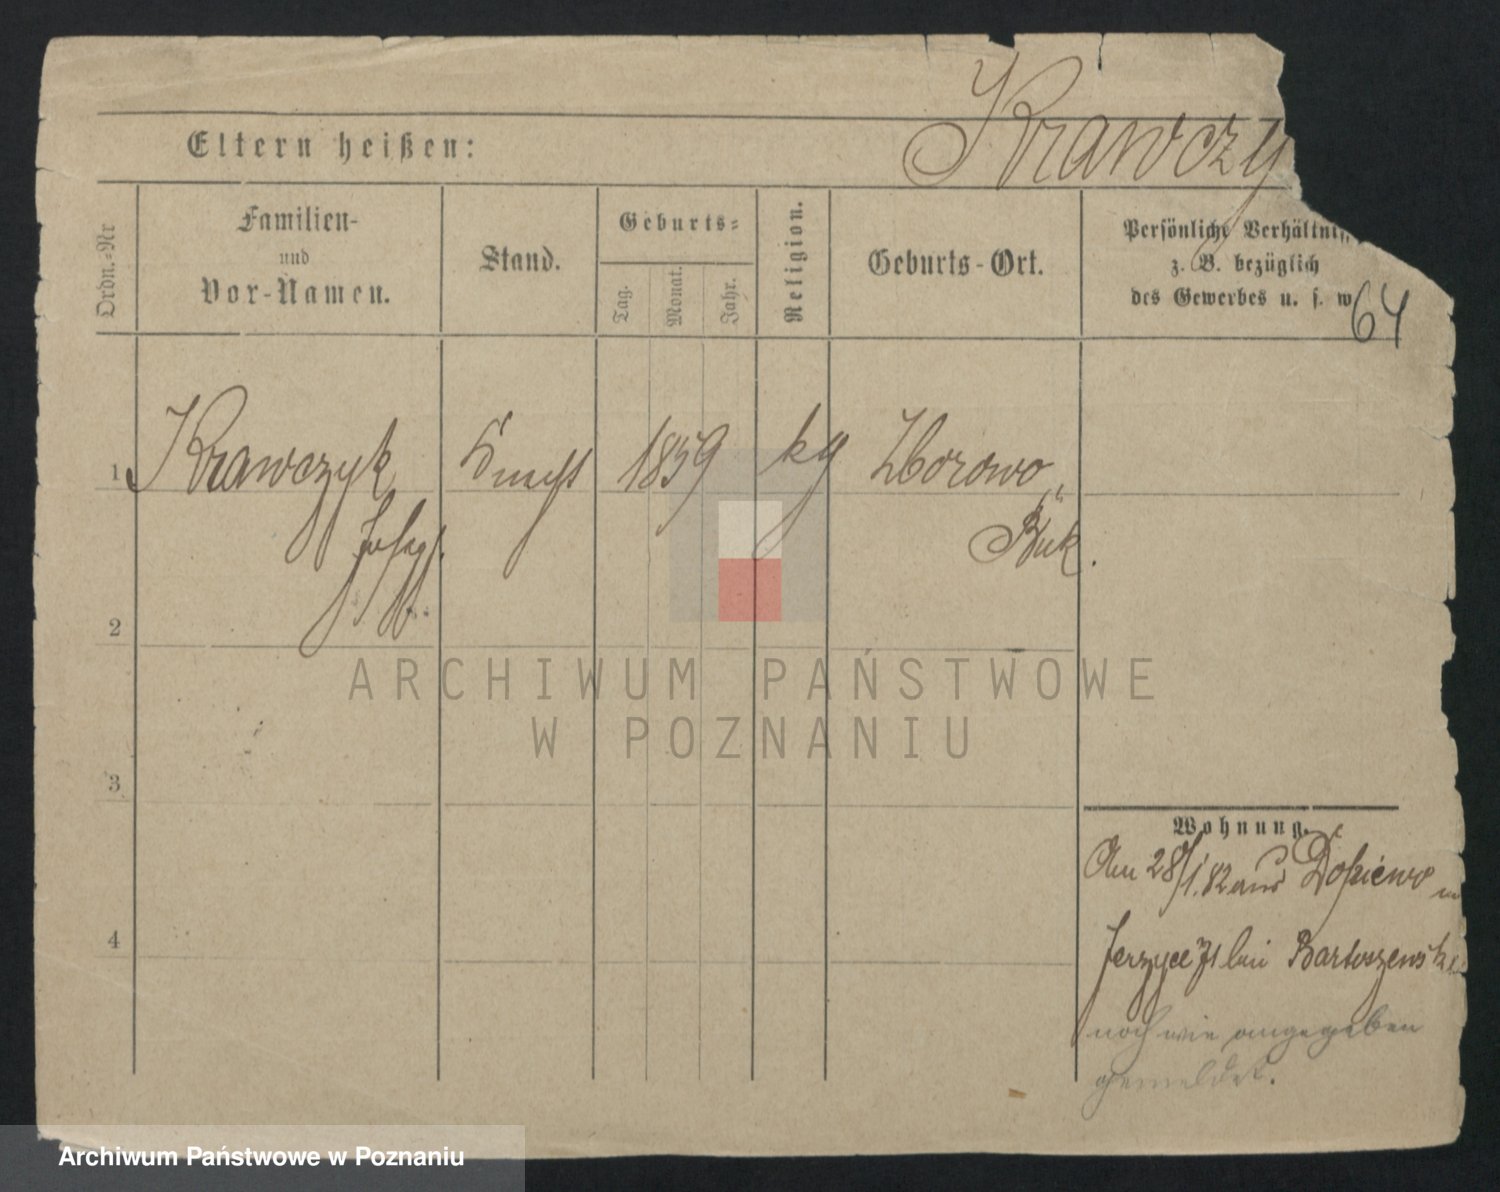 Krawczy
Eltern heißen:
Ordn.=Nr
Familien-
und
Vor-Namen.
Stand.
Geburts=
Tag.
Monat.
Jahr.
Religion.
Geburts-Ort.
Persönliche Verhältniss
z. B. bezüglich
des Gewerbes u. s. w
64
1 Krawczyk Knecht 1859 kg Zborowo
Josef. Buk.
2
3
4
Wohnung.
Am 28/1.82 aus Dopiewo
Jerzyce 71 bei Bartoszewski
noch wie angegeben
gemeldet.
ARCHIWUM PAŃSTWOWE
W POZNANIU
Archiwum Państwowe w Poznaniu